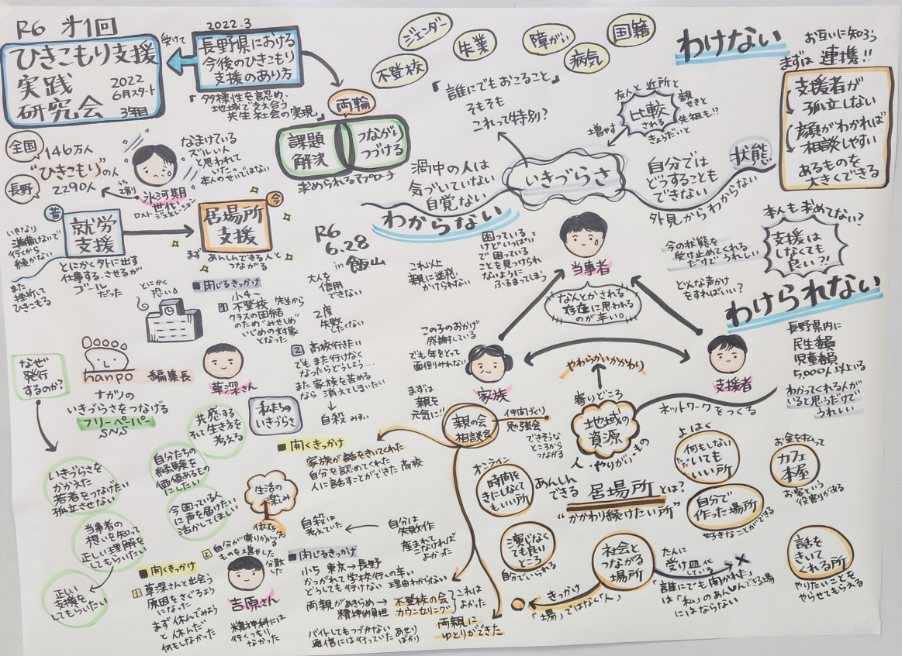 R6 才1回
ひきこもり支援
実践
研究会
2022
6月スタート
3年目
受けて
2022.3
長野県における
今後のひきこもり
支援のあり方
「多様性を認め、
地域で支え合う
共生社会の実現」
両輪
課題
解決
つながり
つづける
求められるアプローチ
ジェンダー
失業
障がい
国籍
不登校
病気
「誰にでもおこること」
そもそも
これって特別?
いきづらさ
渦中の人は
気づいていない
自覚ない
わからない
友人、近所と
比較
される
増やす
親せき
先祖も!!
きょうだいと
自分では
どうすることも
できない
状態
外見からわからない
わけない
お互いに知ろう
まずは 連携!!
支援者が
孤立しない
顔がわかれば
相談しやすい
あるものを
大きくできる
全国
146万人
"ひきこもり"の人
長野
2290人
なまけている
ズルい人
と思われて
いた。
本人のせいではない。
氷河期
世代
ロストジェネレーション
昔
就労
支援
今
居場所
支援
まず あんしんできる人と
つながる
いきなり
準備ないで
行くから
続かない
また
挫折して
ひきこもる
とにかく外に出す
仕事する、させるが
ゴール
だった
R6
6.28
in 飯山
■閉じるきっかけ
小5~
1 不登校 先生から
クラスの団結
のためみせしめ
いじめの対象
となった
大人を
信用
できない
2度
失敗
したくない
2 高校行きたい
でもまた行けなく
なったらどうしよう…
また家族を苦める
なら消えてしまいたい
自殺
これ以上
親に迷惑
かけられない
困っている
けどいっぱい
で困っている
ことを見つけられ
ないように
ふるまってしまう
当事者
なんとかされる
存在に思われる
のが辛い。
今の状態を
受け止めてくれる
だけでうれしい
どんな声かけ
をすればいい?
本人も求めてない?
支援は
しなくても
良い?!
わけられない
長野県内に
民生委員
児童委員
5,000人以上いる
わかってくれる人が
いると思うだけで
うれしい
この子のおかげ
感謝している
でも年をとって
面倒みれない
まずは
親を
元気に!!
家族
やわらかいかかわり
支援者
ネットワークをつくる
寄りどころ
地域の
資源
人・やりがい・もの
なぜ
発行
するのか?
hanpo
編集長
草深さん
ナガノの
いきづらさをつなげる
フリーペーパー
SNS
私たちの
いきづらさ
共感する
そして生き方を
考える
自分たちの
経験を
価値あるもの
にしたい
いきづらさを
かかえた
若者をつなげたい
孤立させない
今困っている人
に声を届けたい
活かしてほしい
当事者の
想いを知って
正しい理解を
してもらいたい
正しい
支援を
してもらいたい
生活の
楽しみ
■開くきっかけ
家族が話をきいてくれた
自分を認めてくれた
人に話すことができた 高校
2 自分が寄りかかる
ものを増やした
分散した
■開くきっかけ
1 草深さんと出会う
原因をさぐるよう
になった
まず休んでみよう
と休んだ
何もしなかった
吉原さん
精神科には
行くつもり
なかった
自殺は
考えていた
自分は
失敗作
産まれて
こなければ
よかった
■閉じるきっかけ
小5 東京→長野
かつがれても学校行くの辛い
どうしても行けない 理由わからない
両親があきらめ
精神的負担
不登校の会
カウンセリング
これは
よかった
バイトしてもつづかない あせり
通信には行っていた ばかり
両親に
ゆとりができた
親の会
相談室
仲間づくり
勉強会
できそうな
ところから
つながる
オンライン
時間を
きにしなくて
もいい所
あんしん
できる
居場所とは?
"かかわり続けたい所"
よはく
何をしない
でいても
いい所
お金を払って
カフェ
本屋
お客という
役割がある
自分で
作った場所
好きなことができる
演じなく
ても良い
ところ
自分でいられる
社会と
つながる
場所
きっかけ
「場」ではなく「人」
たんに
受け皿に
している
誰にでも開かれている場
は「私」のあんしんできる場
にはならない
話を
きいて
くれる所
やりたいことを
やらせてもらえる